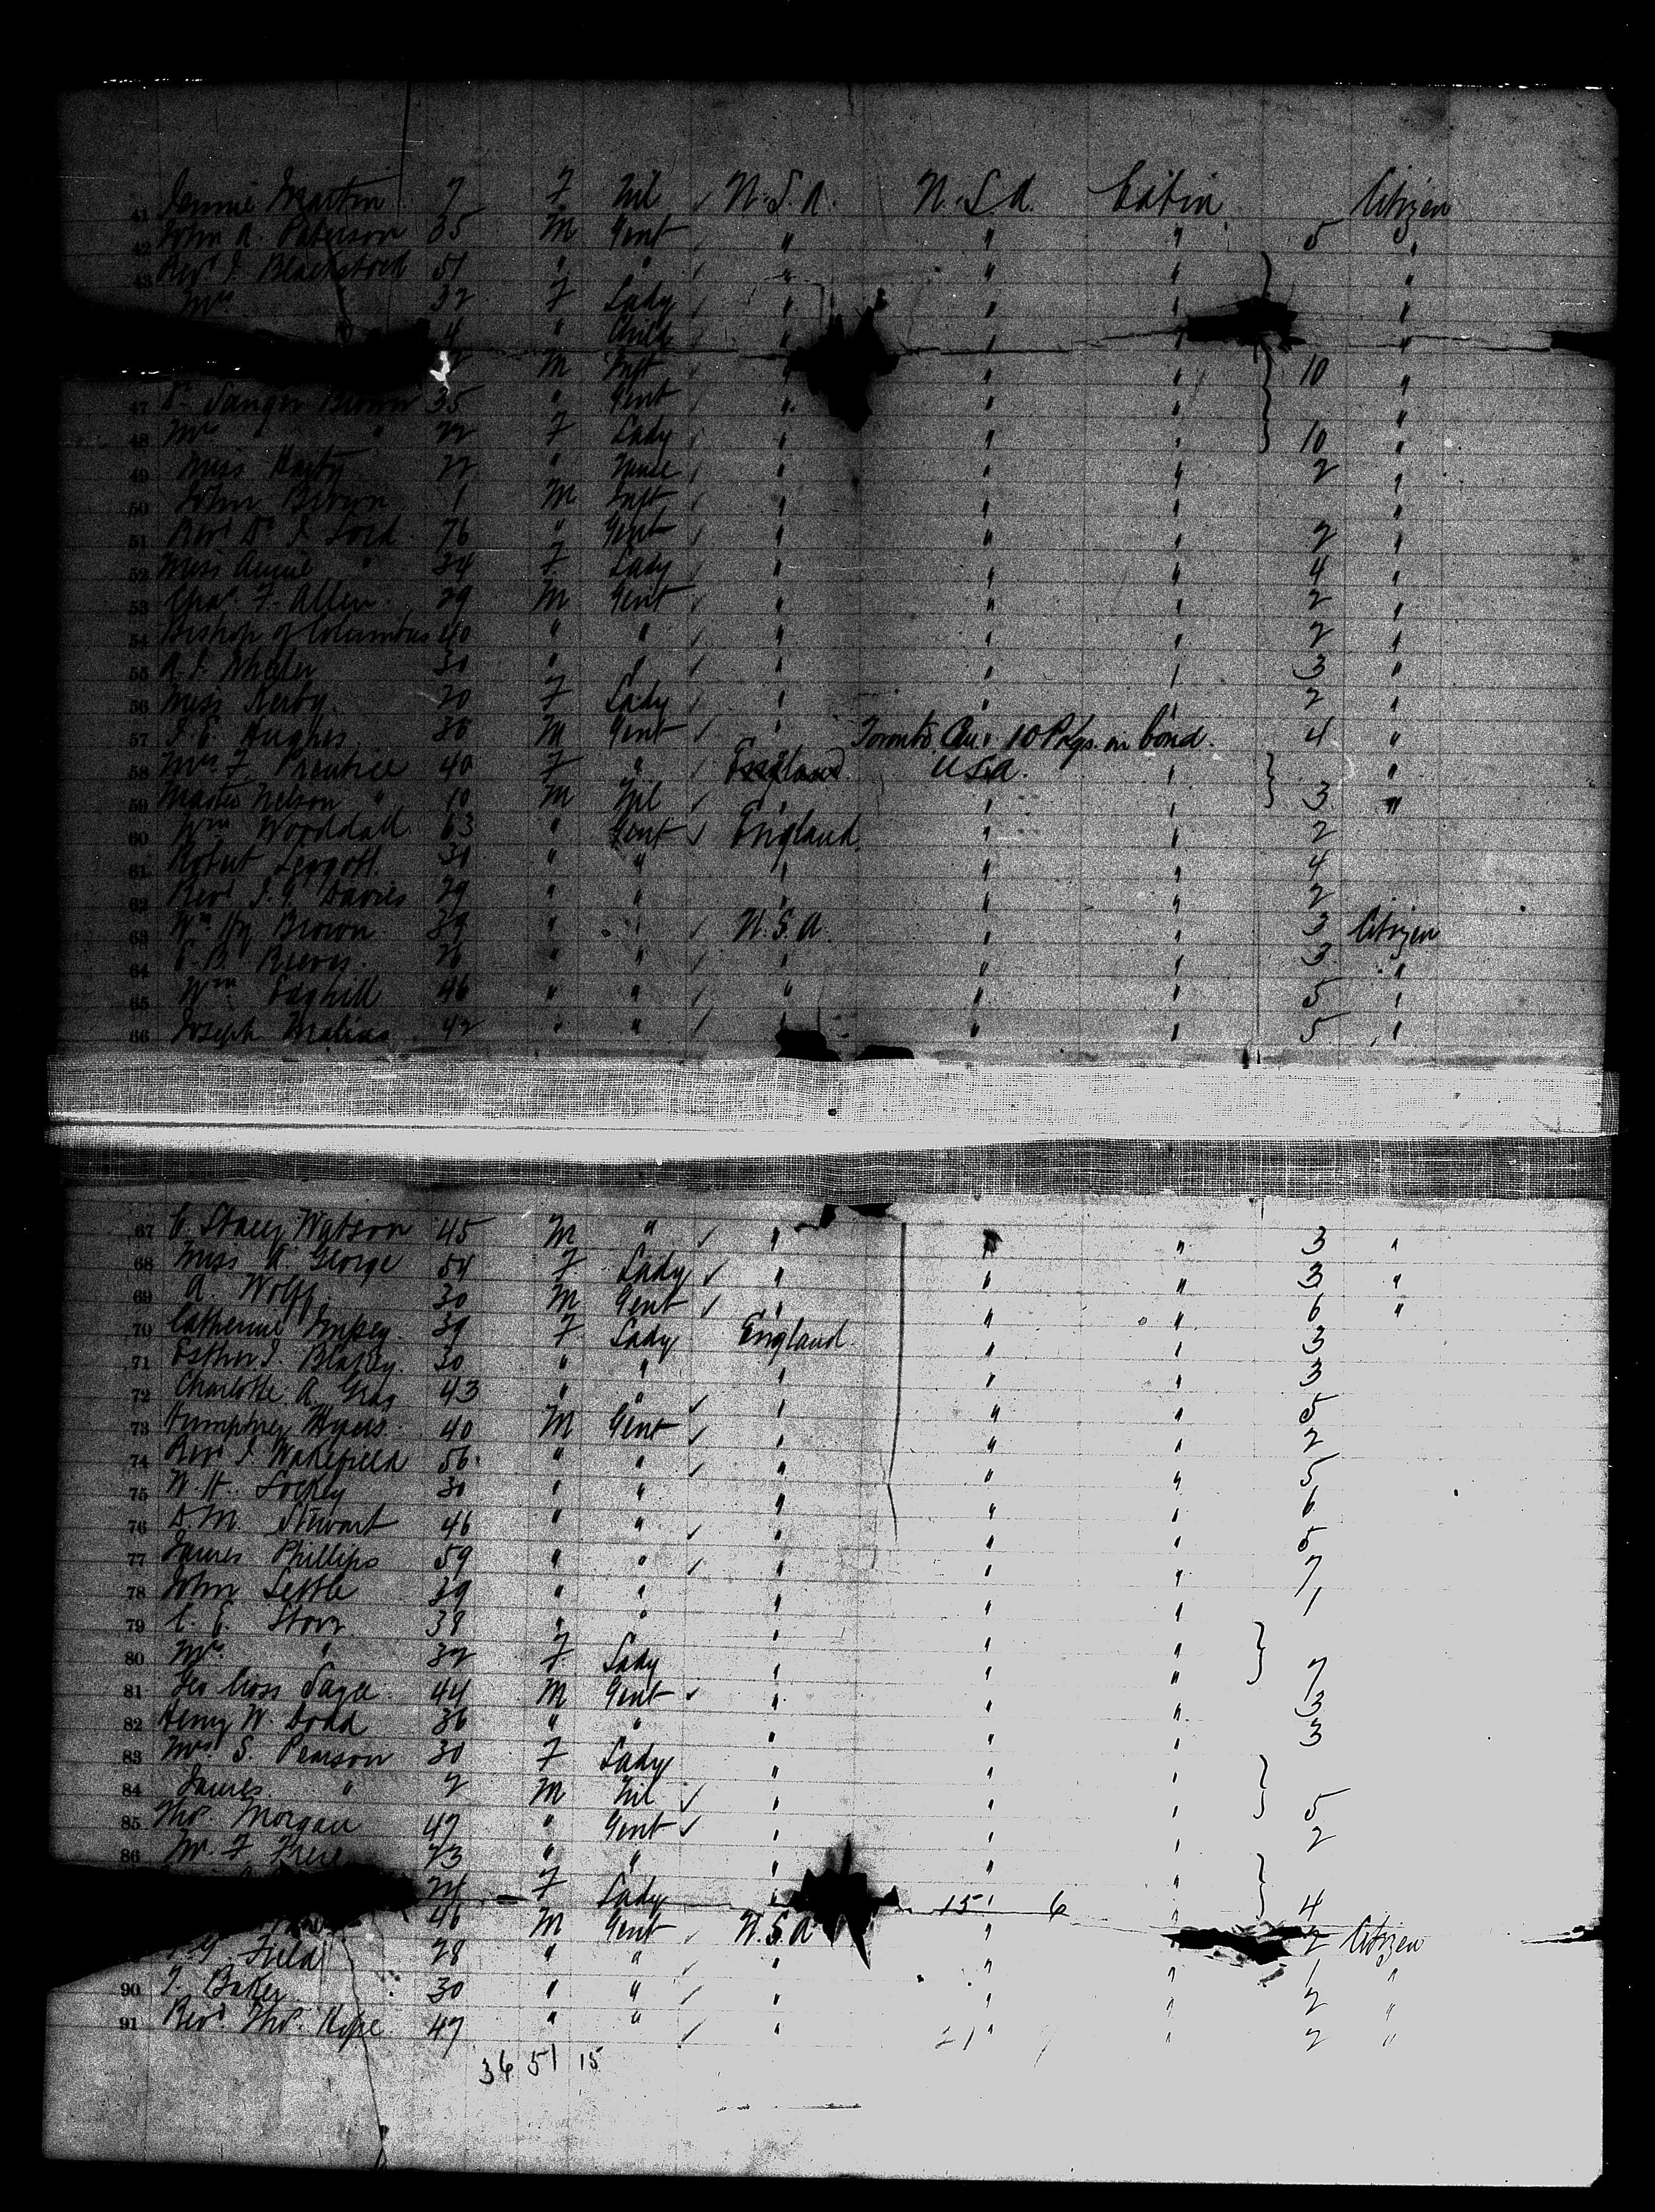 41 Jennie Martin 7 F Nil ✓ U.S.A. U.S.A. Cabin Citizen
42 John A. Paterson 35 M Gent ✓ " " " 5 "
43 Revd J. Blackstock 51 " " ✓ " " " "
Mrs 32 F Lady ✓ " " " "
4 " Child " " "
M Inft ✓ " " " 10 "
47 Dr Sanger Brown 35 " Gent ✓ " " " "
48 Mrs " 22 F Lady ✓ " " " 10 "
49 Miss Harty 22 " Nurse ✓ " " " 2 "
50 John Brown 1 M Inft ✓ " " " "
51 Revd Dr J. Lord 76 " Gent ✓ " " " 2 "
52 Miss Annie " 34 F Lady ✓ " " " 4 "
53 Chas. F. Allen 29 M Gent ✓ " " " 2 "
54 Bishop of Columbus 40 " " ✓ " " " 2 "
55 A. J. Wheeler 30 " " ✓ " " " 3 "
56 Miss Kerby 20 F Lady ✓ " " " 2 "
57 J. E. Hughes 38 M Gent ✓ " Toronto, Can. 10 Pkgs. in bond. 4 "
58 Mrs F. Prentice 40 F " ✓ England U.S.A. " "
59 Master Nelson " 10 M Nil ✓ " " " 3 "
60 Wm Wooddall 63 " Gent ✓ England " " 2
61 Robert Leggott 30 " " " " " 4
62 Revd J. G. Davies 29 " " " " " 2
63 Wm Hy Brown 39 " " ✓ U.S.A. " " 3 Citizen
64 C. B. Reeves 26 " " ✓ " " " 3 "
65 Wm Edghill 46 " " ✓ " " " 5 "
66 Joseph Malins 42 " " ✓ " " " 5 "
67 C. Stacey Watson 45 M " ✓ " " " 3 "
68 Miss A. George 54 F Lady ✓ " " " 3 "
69 A. Wolff 30 M Gent ✓ " " " 6 "
70 Catherine Impey 39 F Lady England " " 3
71 Esther J. 30 " " " " " 3
72 Charlotte A. Gray 43 " " ✓ " " " 5
73 Humphrey Hyers 40 M Gent ✓ " " " 2
74 Revd J. Wakefield 56 " " ✓ " " " 5
75 W. H. Lockey 30 " " " " " 6
76 D. M. Stewart 46 " " ✓ " " " 5
77 James Phillips 59 " " ✓ " " " 7
78 John Settle 39 " " " " " 1
79 C. E. Storr 38 " " " " "
80 Mrs " 32 F Lady " " " 7
81 Geo Cross Sager 44 M Gent ✓ " " " 3
82 Henry W. Dodd 36 " " " " " 3
83 Mrs S. Pearson 30 F Lady " " "
84 James " 2 M Nil ✓ " " " 5
85 Thos. Morgan 47 " Gent ✓ " " " 2
86 W. F. 73 " " " " "
24 F Lady " 15 " 6 " 4
46 M Gent ✓ U.S.A " " 2 Citizen
Field 28 " " ✓ " " " 1 "
90 J. Baker 30 " " ✓ " " " 2 "
91 Revd Thos. Hope 47 " " ✓ " 21 " " 2 "
36 51 15